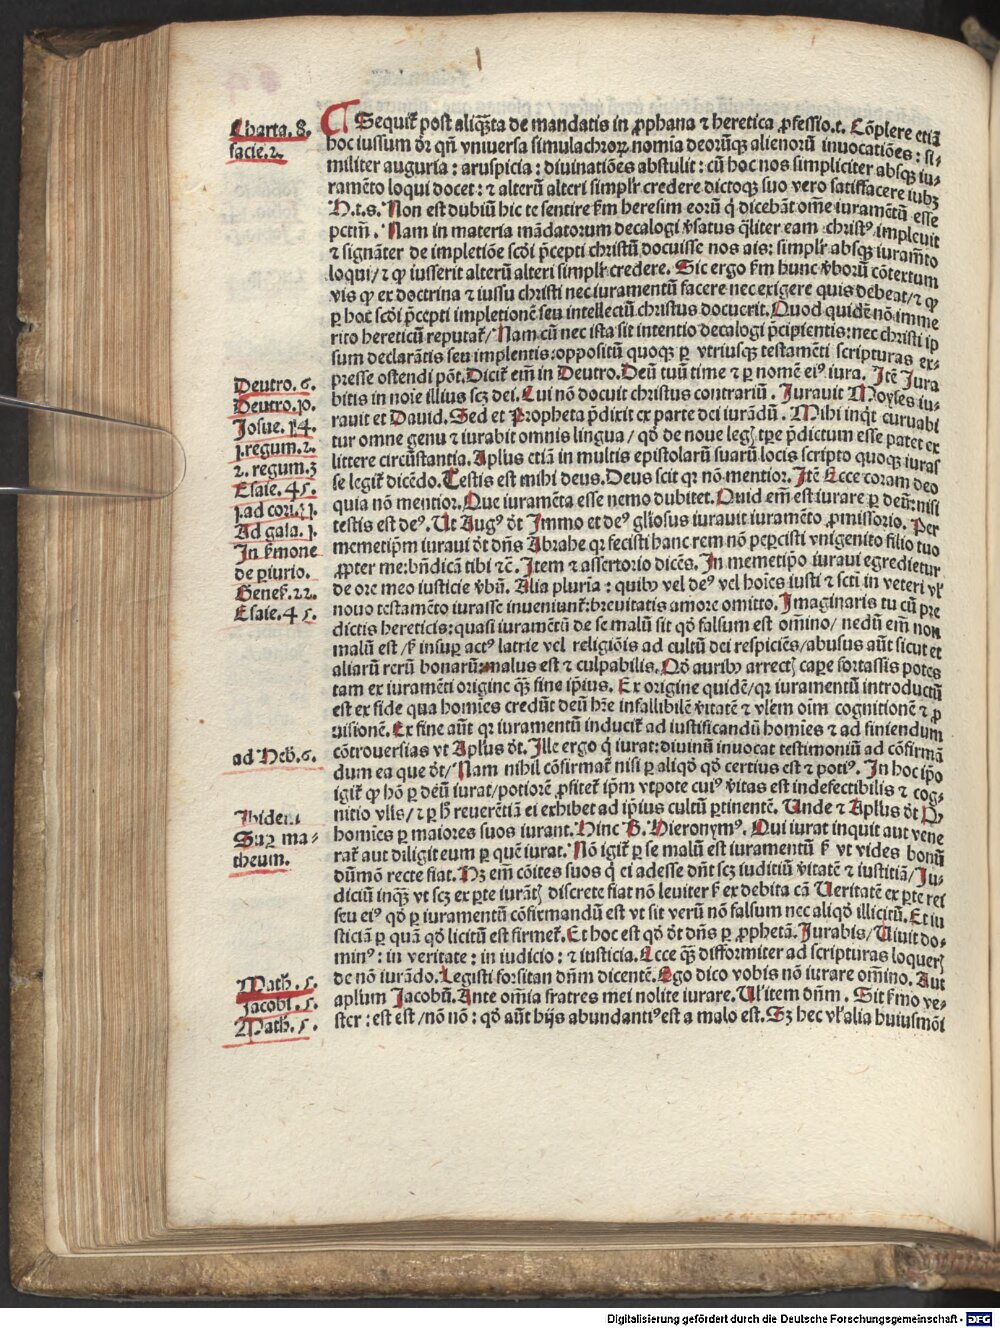 Charta. 8.
facie. 2.
¶ Sequit̃ post aliq̃ta de mandatis in ꝓphana ⁊ heretica ꝓfessio.t. Cōplere etiā
hoc iussum dr̄ qñ vniuersa simulachroꝝ nomia deorūqꝫ alienorū inuocatiōes: si⸗
militer auguria: aruspicia: diuinatiōes abstulit: cū hoc nos simpliciter absqꝫ iu⸗
ramēto loqui docet: ⁊ alterū alteri simplr̄ credere dictoqꝫ suo vero satisfacere iubꝫ
N.t.s. Non est dubiū hic te sentire ẜm heresim eorū q̇ dicebāt om̄e iuramētū esse
pctm̄. Nam in materia mādatorum decalogi v̓satus q̄liter eam christꝰ impleuit
⁊ signāter de impletiōe scd̓i p̄cepti christū docuisse nos ais: simplr̄ absqꝫ iuram̄to
loqui/ ⁊ ꝙ iusserit alterū alteri simplr̄ credere. Sic ergo ẜm hunc v̓borū cōtextum
vis ꝙ ex doctrina ⁊ iussu christi nec iuramentū facere nec exigere quis debeat/ ⁊ ꝙ
ꝑ hoc scd̓i p̄cepti impletionē seu intellectū christus docuerit. Quod quidē nō imme
rito hereticū reputat̃/ Nam cū nec ista sit intentio decalogi p̄cipientis: nec christi ip
sum declarātis seu implentis: oppositū quoqꝫ ꝑ vtriusqꝫ testamēti scripturas ex⸗
presse ostendi pōt. Dicit̃ em̄ in Deutro. Deū tuū time ⁊ ꝑ nomē eiꝰ iura. Itē Jura
bitis in noīe illius scꝫ dei. Cui nō docuit christus contrariū. Jurauit Moyses iu⸗
rauit et Dauid. Sed et Propheta p̄dixit ex parte dei iurādū. Mihi inq̇t curuabi
tur omne genu ⁊ iurabit omnis lingua/ qḋ de noue legꝭ tꝑe p̄dictum esse patet ex
littere circūstantia. Apl̓us etiā in multis epistolarū suarū locis scripto quoqꝫ iuras
se legit̃ dicēdo. Testis est mihi deus. Deus scit qꝛ nō mentior. Itē Ecce coram deo
quia nō mentior. Que iuramēta esse nemo dubitet. Quid em̄ est iurare ꝑ deū: nisi
testis est deꝰ. Ut Augꝰ d̓t Immo et deꝰ gl̓iosus iurauit iuramēto ꝓmissorio. Per
memetip̄m iuraui d̓t dn̄s Abrahe qꝛ fecisti hanc rem nō pepercisti vnigenito filio tuo
ꝓpter me: bn̄dicā tibi ⁊c̄. Item ⁊ assertorio dicēs. In memetip̄o iuraui egredietur
de ore meo iusticie v̓bū. Alia pluria: quibꝰ vel deꝰ vel hoīes iusti ⁊ scti in veteri vl̓
nouo testamēto iurasse inueniunt̃: breuitatis amore omitto. Imaginaris tu cū pre
dictis hereticis: quasi iuramētū de se malū sit qḋ falsum est om̄ino/ nedū em̄ non
malū est/ ẜ insuꝑ actꝰ latrie vel religiōis ad cultū dei respiciēs/ abusus aūt sicut et
aliarū rerū bonarū: malus est ⁊ culpabilis. Qḋ auribꝰ arrectꝭ caꝑe fortassis potes
tam ex iuramēti origine q̄ꝫ fine ip̄ius. Ex origine quidē/ qꝛ iuramentū introductū
est ex fide qua homīes credūt deū hr̄e infallibilē v̓itatē ⁊ vl̓em oīm cognitionē ⁊ ꝓ
uisionē. Ex fine aūt qꝛ iuramentū inducit̃ ad iustificandū homīes ⁊ ad finiendum
cōtrouersias vt Apl̓us d̓t. Ille ergo q̇ iurat: diuinū inuocat testimoniū ad cōfirmā
dum ea que d̓t/ Nam nihil cōfirmat̃ nisi ꝑ aliqḋ qḋ certius est ⁊ potiꝰ. In hoc ip̄o
igit̃ ꝙ hō ꝑ deū iurat/ potiorē ꝓfitet̃ ip̄m vtpote cuiꝰ v̓itas est indefectibilis ⁊ cog⸗
nitio vl̓is/ ⁊ ꝑ h̓ reuerētiā ei exhibet ad ip̄ius cultū ꝑtinentē. Unde ⁊ Apl̓us d̓t Qꝛ
homīes ꝑ maiores suos iurant. Hinc B. Hieronymꝰ. Qui iurat inquit aut vene
rat̃ aut diligit eum ꝑ quē iurat. Nō igit̃ ꝑ se malū est iuramentū ẜ vt vides bonū
dūmō recte fiat. Hꝫ em̄ cōites suos q̇ ei adesse dn̄t scꝫ iuditiū v̓itatē ⁊ iustitiā/ Iu⸗
diciū inq̄ꝫ vt scꝫ ex ꝑte iurātꝭ discrete fiat nō leuiter ẜ ex debita cā Ueritatē ex ꝑte rei
seu eiꝰ qḋ ꝑ iuramentū cōfirmandū est vt sit verū nō falsum nec aliqḋ illicitū. Et iu
sticiā ꝑ quā qḋ licitū est firmet̃. Et hoc est qḋ d̓t dn̄s ꝑ ꝓphetā. Jurabis/ Uiuit do⸗
minꝰ: in veritate: in iudicio: ⁊ iusticia. Ecce q̄ꝫ difformiter ad scripturas loquerꝭ
de nō iurādo. Legisti forsitan dn̄m dicentē. Ego dico vobis nō iurare om̄ino. Aut
apl̓um Jacobū. Ante om̄ia fratres mei nolite iurare. Ul̓ item dn̄m. Sit ẜmo ve⸗
ster: est est/ nō nō: qḋ aūt hijs abundantiꝰ est a malo est. Sꝫ hec vl̓ alia huiusmōi
Deutro. 6.
Deutro. 10.
Josue. 14.
1. regum. 2.
2. regum. 3
Esaie. 45.
1. ad cori. 11.
Ad gala. 1.
In ẜmone
de ꝑiurio.
Genes̄. 22.
Esaie. 45.
ad Heb̓. 6.
Ibidem
Suꝑ ma⸗
theum.
Math. 5.
Jacobi. 5.
Math. 5.
Digitalisierung gefördert durch die Deutsche Forschungsgemeinschaft - DFG